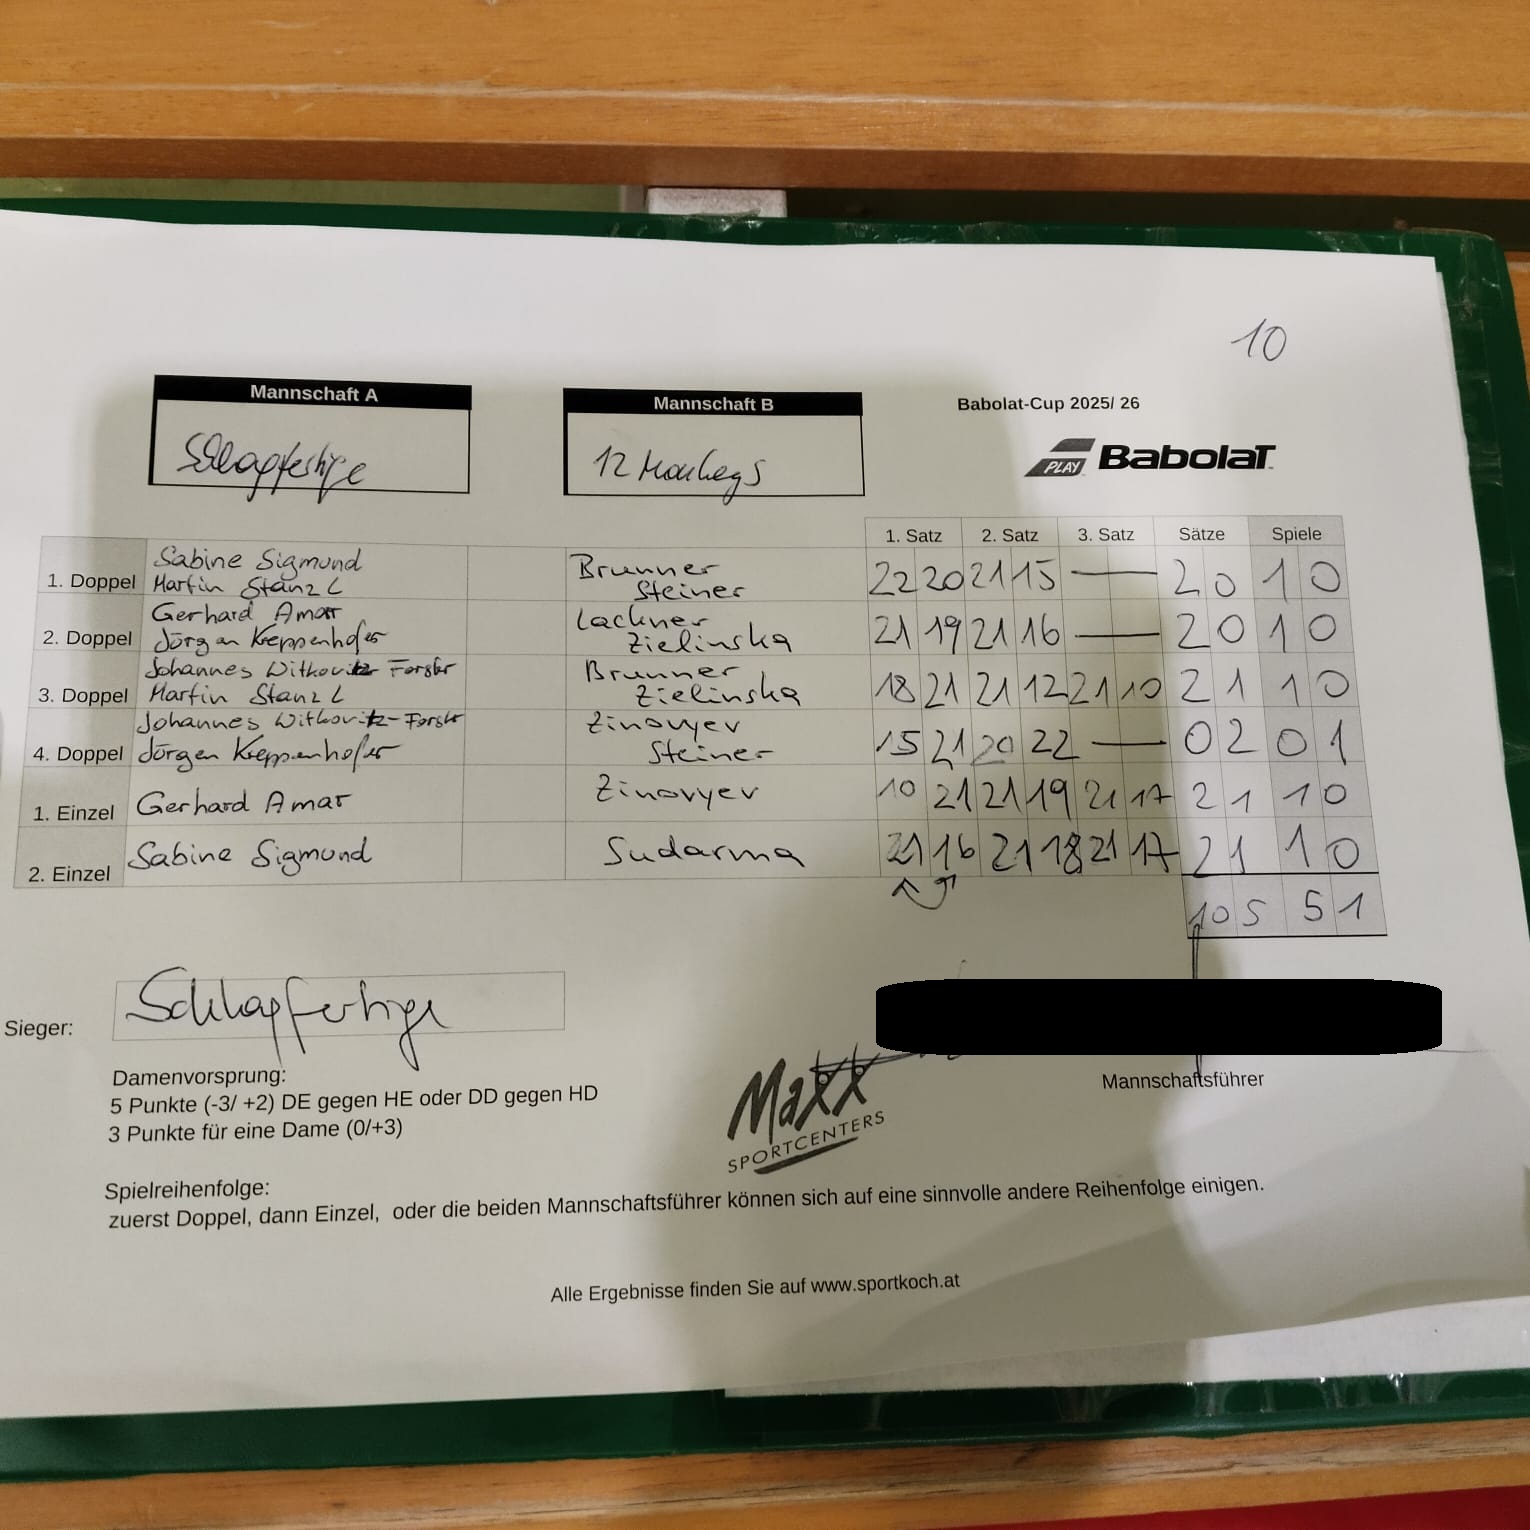 10
Mannschaft A
Mannschaft B
Babolat-Cup 2025/ 26
Schlagfertige
12 Monkeys
PLAY BabolaT
1. Satz 2. Satz 3. Satz Sätze Spiele
Sabine Sigmund
Martin Stanzl
1. Doppel
Brunner
Steiner
22 20 21 15 — 2 0 1 0
Gerhard Amar
Jörgen Kreppenhofer
2. Doppel
Lackner
Zielinska
21 19 21 16 — 2 0 1 0
Johannes Witkovitz-Forster
Martin Stanzl
3. Doppel
Brunner
Zielinska
18 21 21 12 21 10 2 1 1 0
Johannes Witkovitz-Forster
Jörgen Kreppenhofer
4. Doppel
Zinovyev
Steiner
15 21 20 22 — 0 2 0 1
1. Einzel Gerhard Amar Zinovyev 10 21 21 19 21 17 2 1 1 0
2. Einzel Sabine Sigmund Sudarma 21 16 21 18 21 17 2 1 1 0
10 5 5 1
Sieger: Schlagfertige
Mannschaftsführer
Damenvorsprung:
5 Punkte (-3/ +2) DE gegen HE oder DD gegen HD
3 Punkte für eine Dame (0/+3)
Maxx
SPORTCENTERS
Spielreihenfolge:
zuerst Doppel, dann Einzel, oder die beiden Mannschaftsführer können sich auf eine sinnvolle andere Reihenfolge einigen.
Alle Ergebnisse finden Sie auf www.sportkoch.at